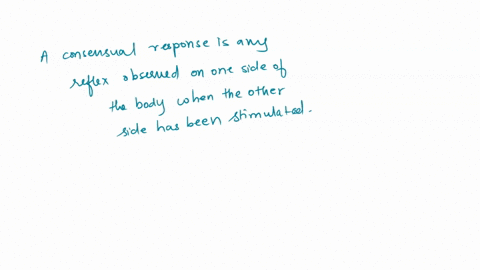 A consensual response is any
reflex observed on one side of
the body when the other
side has been stimulated.